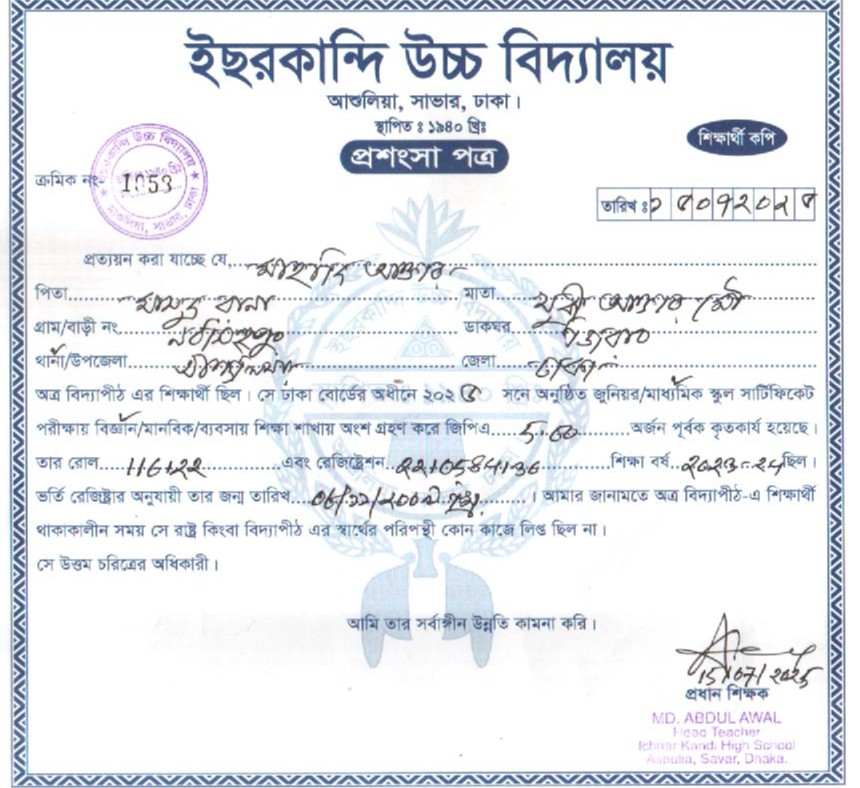 ইছরকান্দি উচ্চ বিদ্যালয়
আশুলিয়া, সাভার, ঢাকা।
স্থাপিত ঃ ১৯৪০ খ্রিঃ
প্রশংসা পত্র
শিক্ষার্থী কপি
ক্রমিক নং- 1053
তারিখ ঃ ১৫০৭২০২৫
প্রত্যয়ন করা যাচ্ছে যে, মাহদি আক্তার
পিতা মাসুদ রানা মাতা খুকী আক্তার মৌ
গ্রাম/বাড়ী নং নরসিংহপুর ডাকঘর
থানা/উপজেলা আশুলিয়া জেলা ঢাকা
অত্র বিদ্যাপীঠ এর শিক্ষার্থী ছিল। সে ঢাকা বোর্ডের অধীনে ২০২৫ সনে অনুষ্ঠিত জুনিয়র/মাধ্যমিক স্কুল সার্টিফিকেট
পরীক্ষায় বিজ্ঞান/মানবিক/ব্যবসায় শিক্ষা শাখায় অংশ গ্রহণ করে জিপিএ 5.00 অর্জন পূর্বক কৃতকার্য হয়েছে।
তার রোল 116122 এবং রেজিষ্ট্রেশন 2210584136 শিক্ষা বর্ষ 2023-24 ছিল।
ভর্তি রেজিষ্ট্রার অনুযায়ী তার জন্ম তারিখ । আমার জানামতে অত্র বিদ্যাপীঠ-এ শিক্ষার্থী
থাকাকালীন সময় সে রাষ্ট্র কিংবা বিদ্যাপীঠ এর স্বার্থের পরিপন্থী কোন কাজে লিপ্ত ছিল না।
সে উত্তম চরিত্রের অধিকারী।
আমি তার সর্বাঙ্গীন উন্নতি কামনা করি।
15/07/2025
প্রধান শিক্ষক
MD. ABDUL AWAL
Head Teacher
Ichhar Kandi High School
Ashulia, Savar, Dhaka.